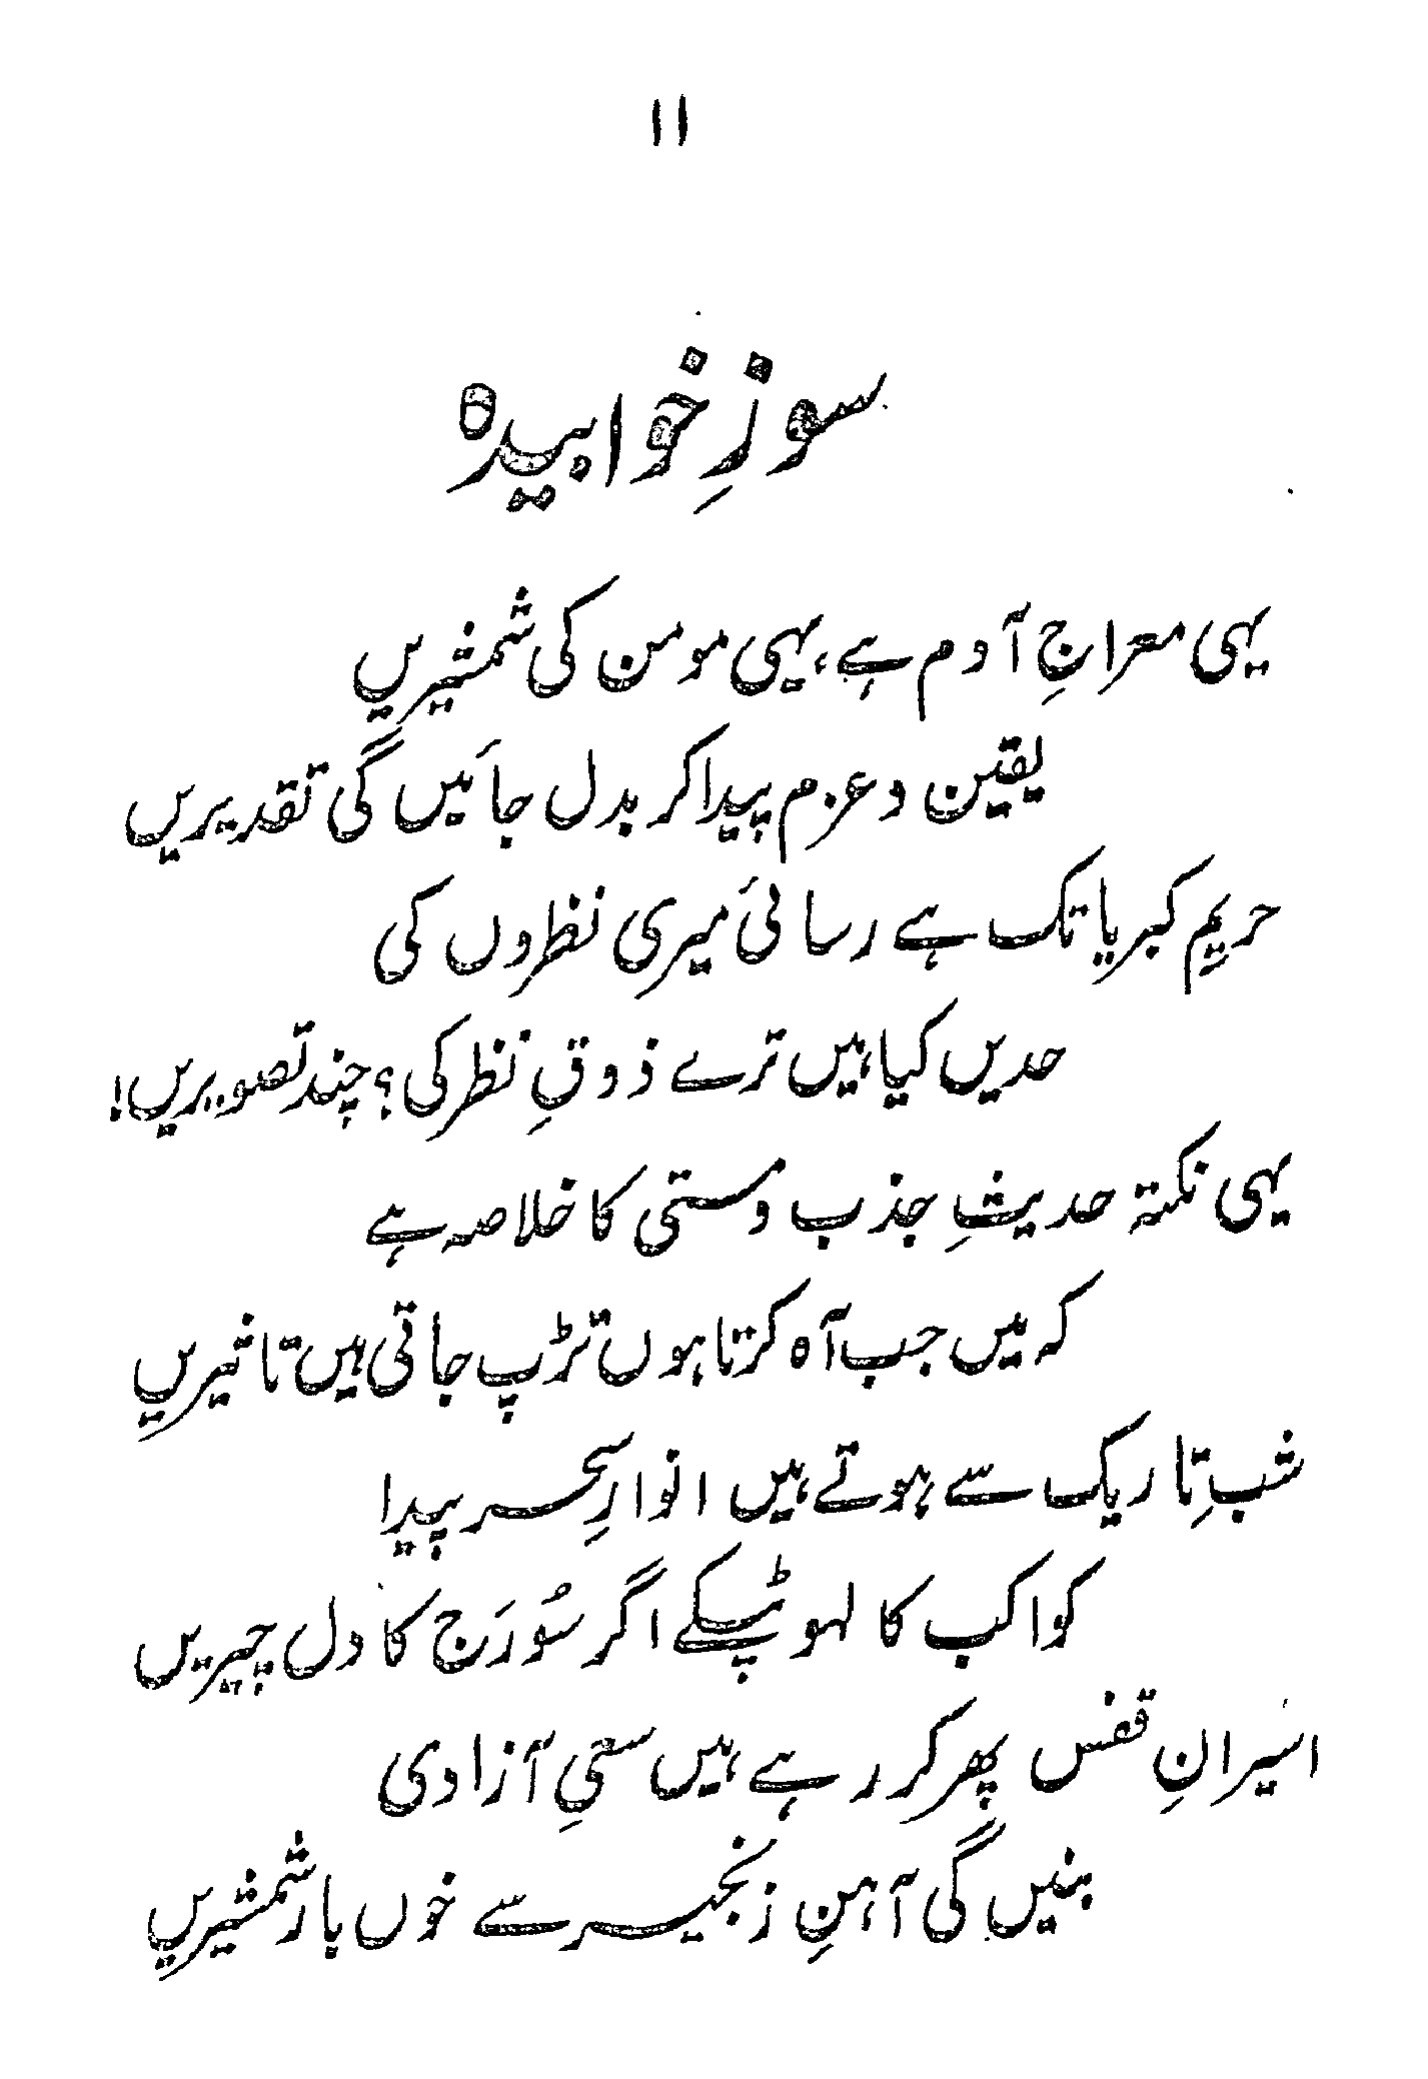 ۱۱
سوزِ خوابیدہ
یہی معراجِ آدم ہے، یہی مومن کی شمشیریں
یقین و عزم پیدا کر بدل جائیں گی تقدیریں
حریمِ کبریا تک ہے رسائی میری نظروں کی
حدیں کیا ہیں ترے ذوقِ نظر کی؟ چند تصویریں!
یہی نکتہ حدیثِ جذب و مستی کا خلاصہ ہے
کہ میں جب آہ کرتا ہوں تڑپ جاتی ہیں تاثیریں
شبِ تاریک سے ہوتے ہیں انوارِ سحر پیدا
کواکب کا لہو ٹپکے اگر سُورَج کا دل چیریں
اسیرانِ قفس پھر کر رہے ہیں سعیِ آزادی
بنیں گی آہنِ زنجیر سے خوں بار شمشیریں